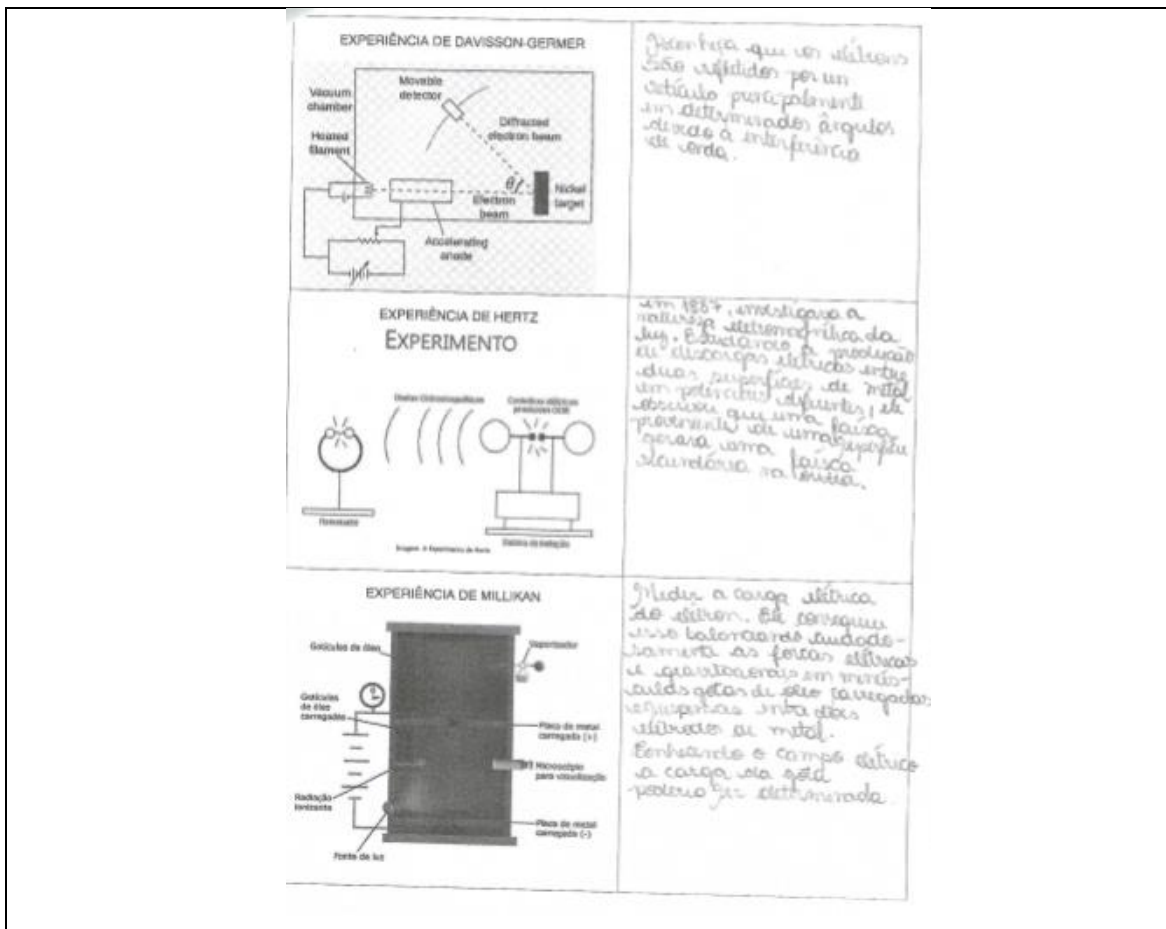 EXPERIÊNCIA DE DAVISSON-GERMER
Movable
detector
Vacuum
chamber
Diffracted
electron beam
Heated
filament
θ
Nickel
target
Electron
beam
Accelerating
anode
que os elétrons
são refletidos por um
retículo principalmente
em determinados ângulos
devido à interferência
de onda.
EXPERIÊNCIA DE HERTZ
EXPERIMENTO
Ondas Eletromagnéticas
produzem OEM
Ressonador
Imagem: O Experimento de Hertz
em 1887, investigava a
natureza eletromagnética da
luz. Estudando a produção
de discargas elétricas entre
duas superfícies de metal
em potenciais diferentes, ele
observou que uma faísca
proveniente de uma
gerava uma faísca
secundária na outra.
EXPERIÊNCIA DE MILLIKAN
Gotículas de óleo
Vaporizador
Gotículas
de óleo
carregadas
Placa de metal
carregada (+)
Microscópio
para visualização
Radiação
ionizante
Placa de metal
carregada (-)
Fonte de luz
Medir a carga elétrica
do elétron. Ele conseguiu
isso balanceando cuidado-
samente as forças elétricas
e gravitacionais em minús-
culas gotas de óleo carregadas
e suspensas entre dois
eletrodos de metal.
o campo elétrico
a carga da gota
poderia ser determinada.